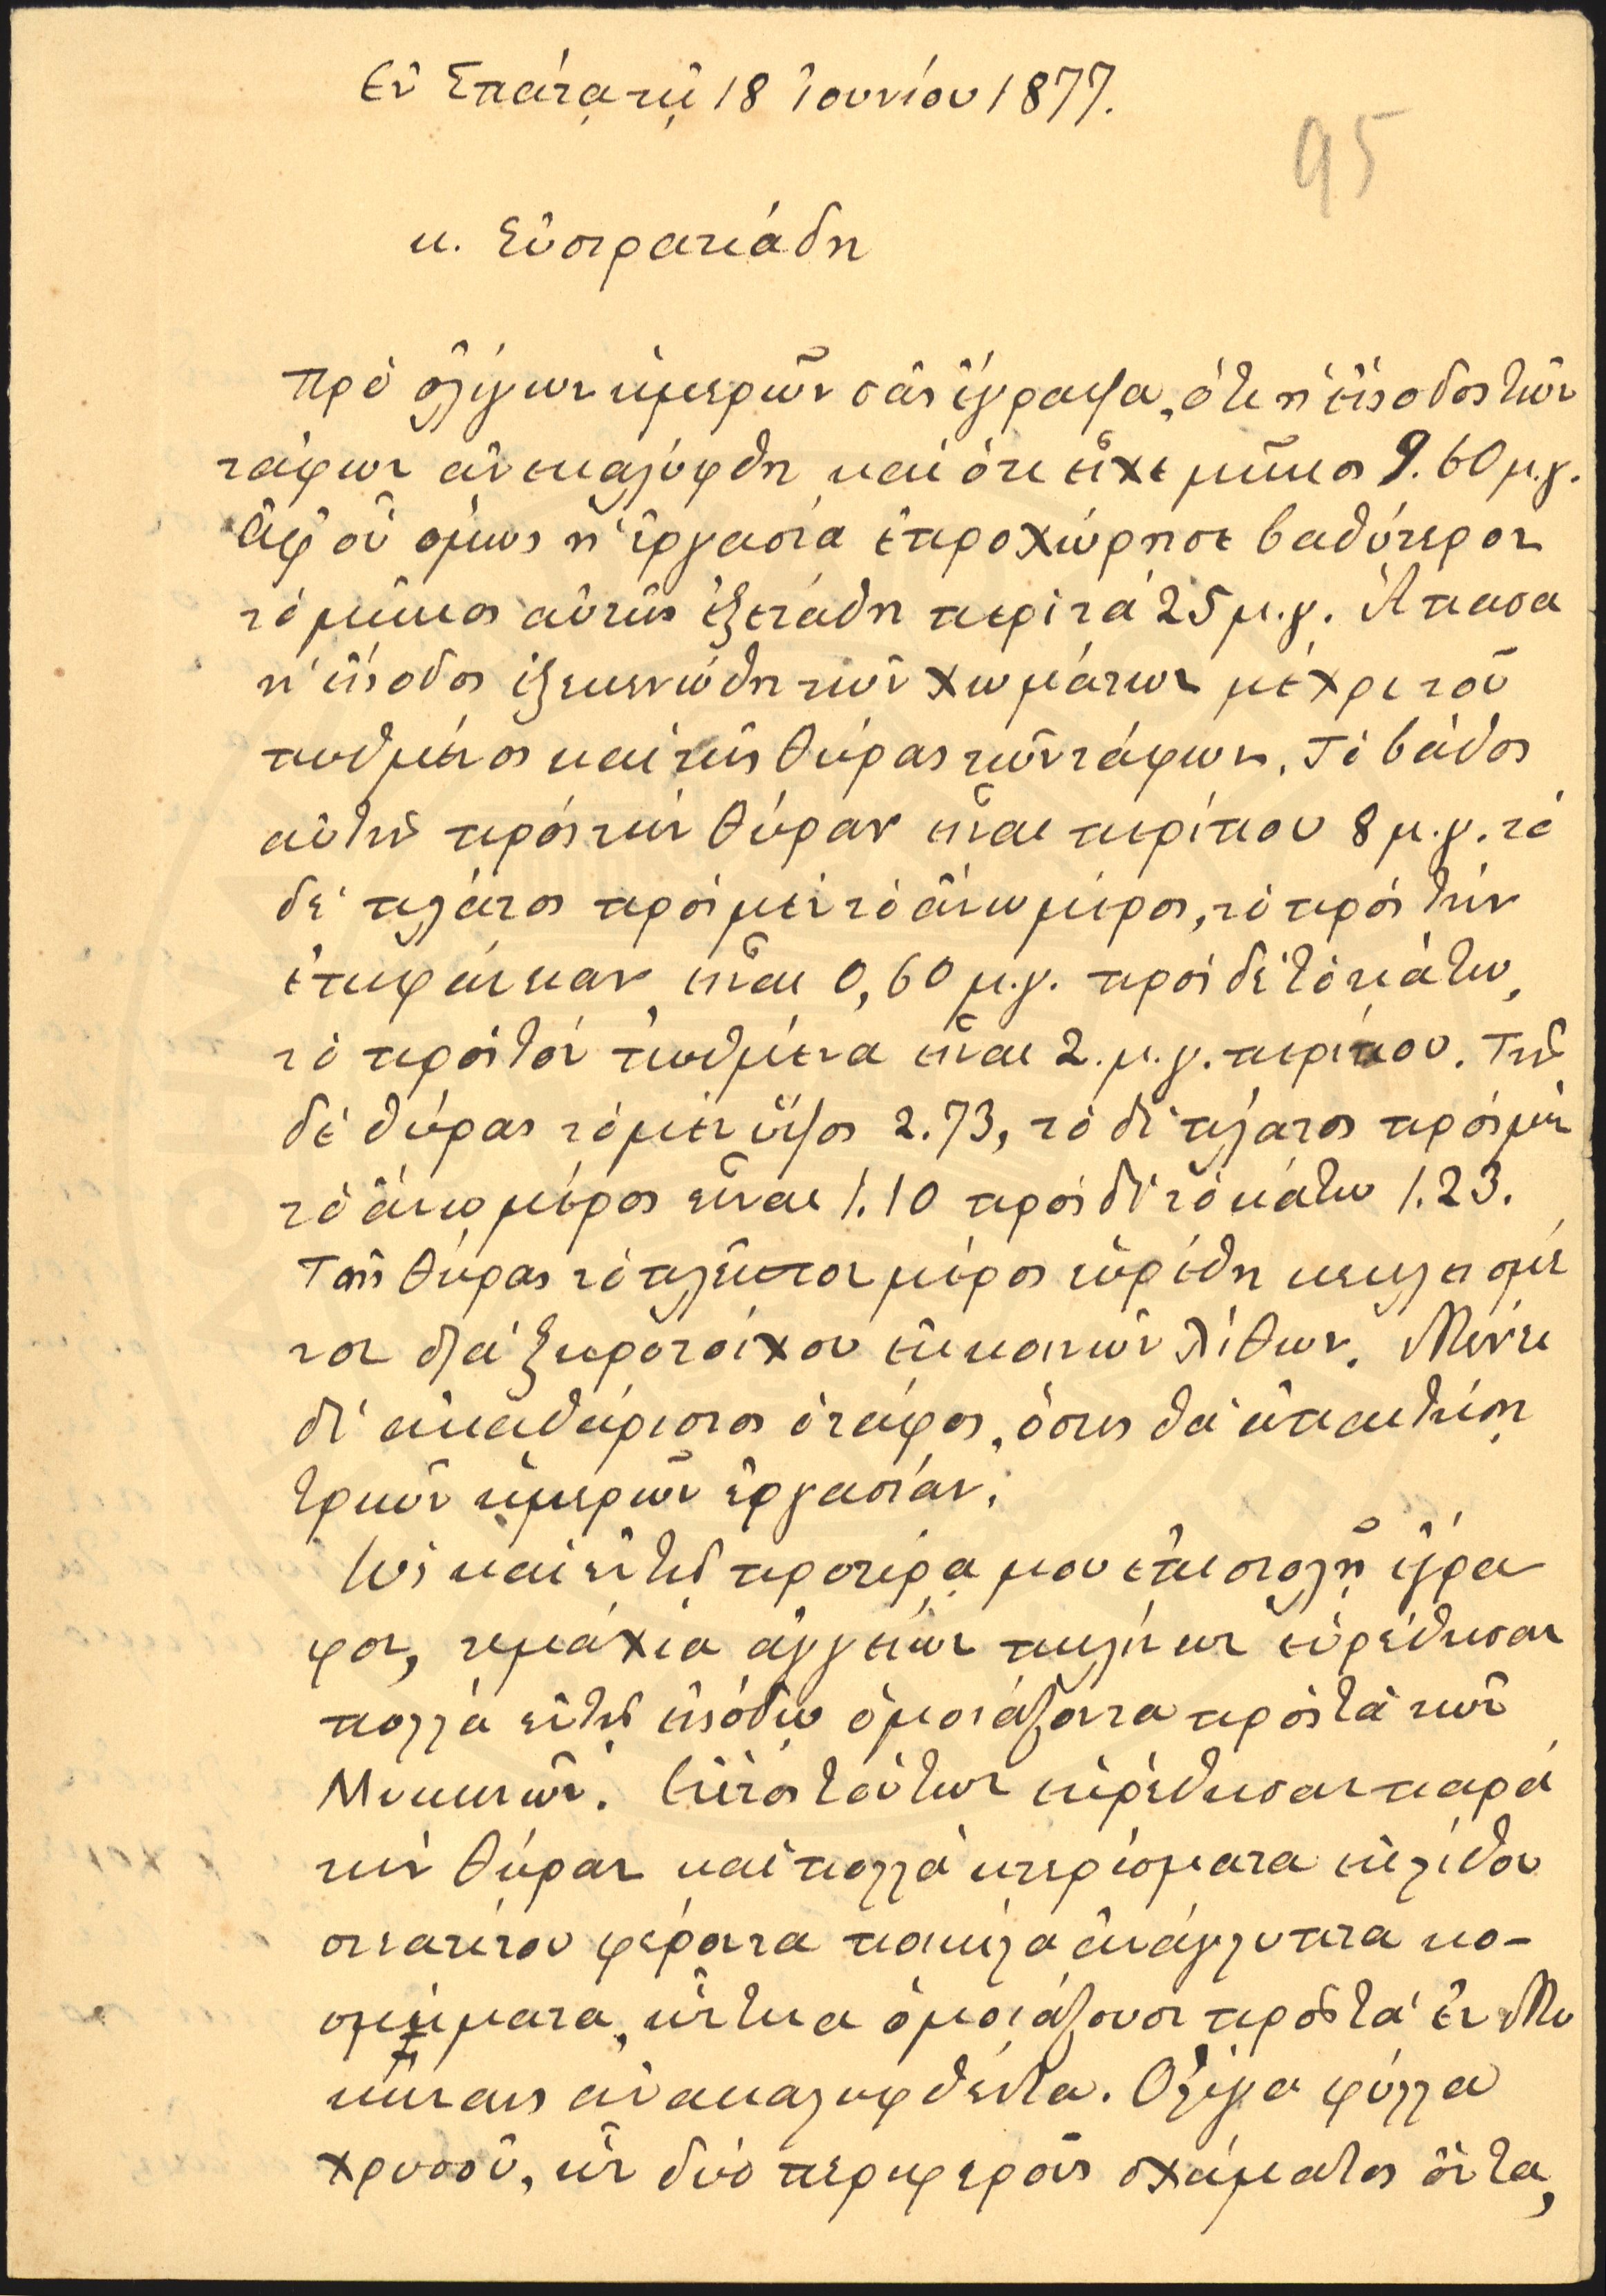 Ἐν Σπάτᾳ τῇ 18 Ἰουνίου 1877.
95
κ. Εὐστρατιάδη
Πρὸ ὀλίγων ἡμερῶν σᾶς ἔγραψα, ὅτι ἡ εἴσοδος τῶν
τάφων ἀνεκαλύφθη καὶ ὅτι εἶχε μῆκος 9.60 μ.γ.
Ἀφ' οὗ ὅμως ἡ ἐργασία ἐπροχώρησε βαθύτερον
τὸ μῆκος αὐτῆς ἐξετάθη περὶ τὰ 25 μ.γ. Ἅπασα
ἡ εἴσοδος ἐξεκενώθη τῶν χωμάτων μέχρι τοῦ
πυθμένος καὶ τῆς θύρας τῶν τάφων. Τὸ βάθος
αὐτῆς πρὸς τὴν θύραν εἶναι περίπου 8 μ.γ. τὸ
δὲ πλάτος πρὸς μὲν τὸ ἄνω μέρος, τὸ πρὸς τὴν
ἐπιφάνειαν, εἶναι 0,60 μ.γ. πρὸς δὲ τὸ κάτω,
τὸ πρὸς τὸν πυθμένα εἶναι 2. μ.γ. περίπου. Τῆς
δὲ θύρας τὸ μὲν ὕψος 2.73, τὸ δὲ πλάτος πρὸς μὲν
τὸ ἄνω μέρος εἶναι 1.10 πρὸς δὲ τὸ κάτω 1.23.
Τῆς θύρας τὸ πλεῖστον μέρος εὑρέθη κεκλεισμέ
νον διὰ ξηροτοίχου ἐκ κοινῶν λίθων. Μένει
δὲ ἀκαθάριστος ὁ τάφος, ὅστις θὰ ἀπαιτήσῃ
τριῶν ἡμερῶν ἐργασίαν.
Ὡς καὶ ἐν τῇ προτέρᾳ μου ἐπιστολῇ ἔγρα
φον, τεμάχια ἀγγείων πηλίνων εὑρέθησαν
πολλὰ ἐν τῇ εἰσόδῳ ὁμοιάζοντα πρὸς τὰ τῶν
Μυκηνῶν. Ἐκτὸς τούτων εὑρέθησαν παρὰ
τὴν θύραν καὶ πολλὰ κτερίσματα ἐκ λίθου
στεατίτου φέροντα ποικίλα ἀνάγλυπτα κο-
σμήματα, ἅτινα ὁμοιάζουσι πρὸς τὰ ἐν Μυ
κήναις ἀνακαλυφθέντα. Ὀλίγα φύλλα
χρυσοῦ, ὧν δύο περιφεροῦς σχήματος ὄντα,